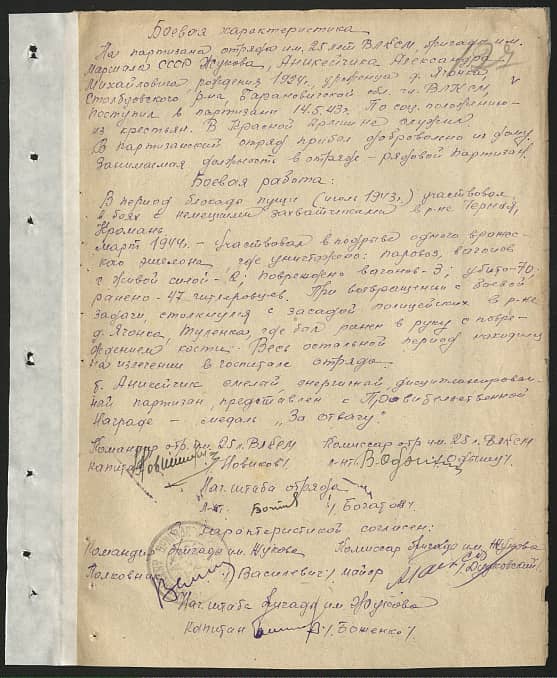 Боевая характеристика
На партизана отряда им. 25 лет ВЛКСМ, бригады им.
Маршала СССР Жукова, Аникейчика Александра
Михайловича, рождения 1924г., уроженца д. Ячонка,
Столбцовского р-на, Барановической обл. чл. ВЛКСМ,
поступил в партизаны 14.5.43г. По соц. положению-
из крестьян. В Красной Армии не служил.
В партизанский отряд прибыл добровольно из дому.
Занимаемая должность в отряде - рядовой партизан.
Боевая работа:
В период блокады пущи (июль 1943г.) участвовал
в боях с немецкими захватчиками в р-не Черная,
Кромань
Март 1944г. - Участвовал в подрыве одного вражес-
кого эшелона где уничтожено: паровоз, вагонов
с живой силой - 2; повреждено вагонов - 3; убито - 70;
ранено - 47 гитлеровцев. При возвращении с боевой
задачи, столкнулся с засадой полицейских в р-не
д. Ячонка, Туленка, где был ранен в руку с повре-
ждением кости. Весь остальной период находился
на излечении в госпитале отряда.
т. Аникейчик смелый энергичный, дисциплинирован-
ный партизан, представлен с Правительственной
Награде - медаль „За отвагу".
Командир отр. им. 25 л. ВЛКСМ Комиссар отр. им. 25 л. ВЛКСМ
капитан /Новиков/ л-нт
Нач. штаба отряда
л-нт /Богатов/
С характеристикой согласен:
Командир бригады им. Жукова Комиссар бригады им. Жукова
Полковник /Василевич/ майор
Нач. штаба бригады им. Жукова
капитан /Боженко/